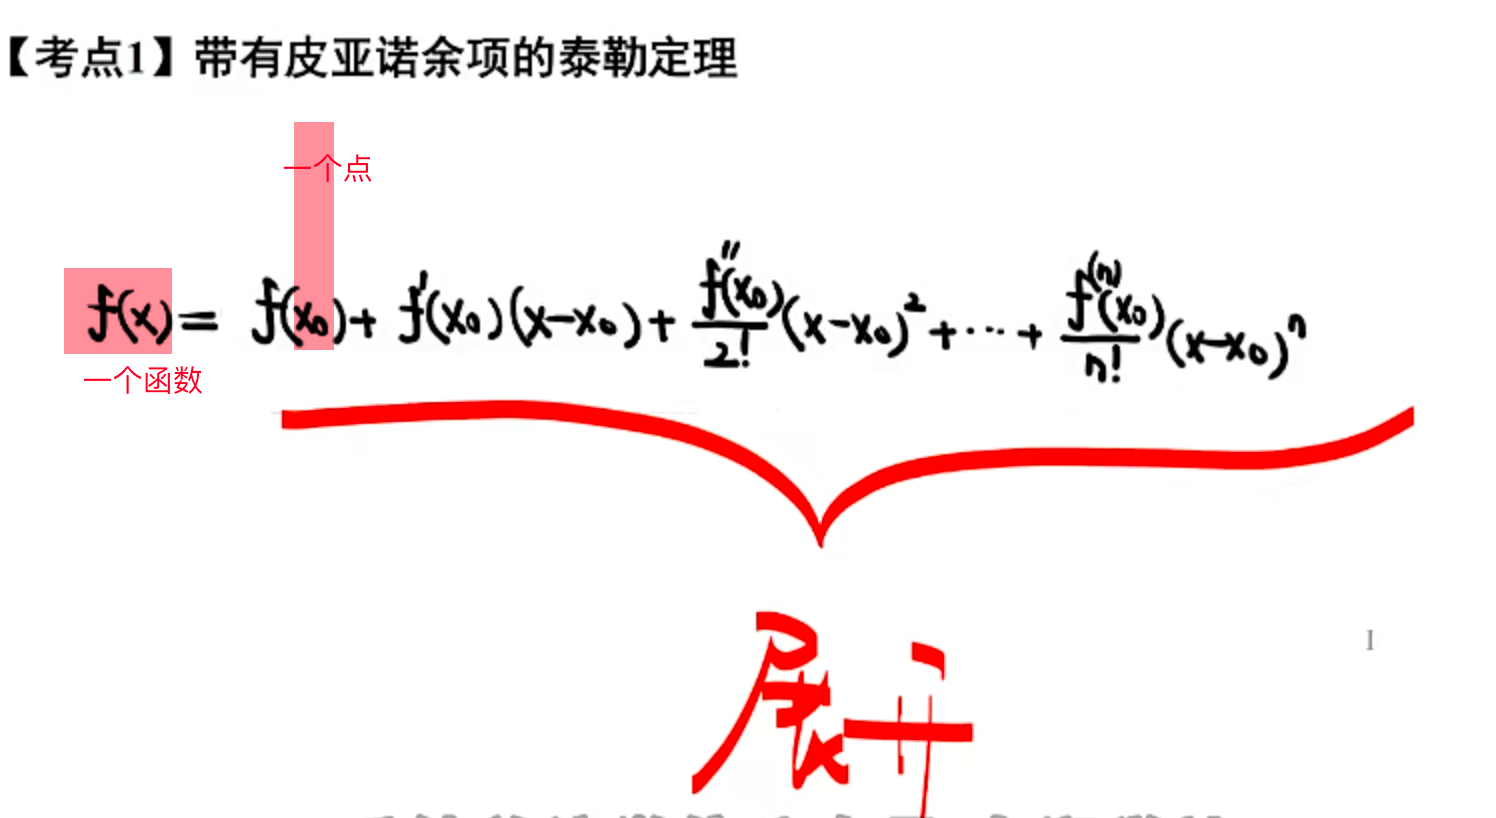 【考点1】带有皮亚诺余项的泰勒定理
一个点
f(x) = f(x₀) + f'(x₀)(x-x₀) + f''(x₀)/2! (x-x₀)² + ··· + f⁽ⁿ⁾(x₀)/n! (x-x₀)ⁿ
一个函数
展开